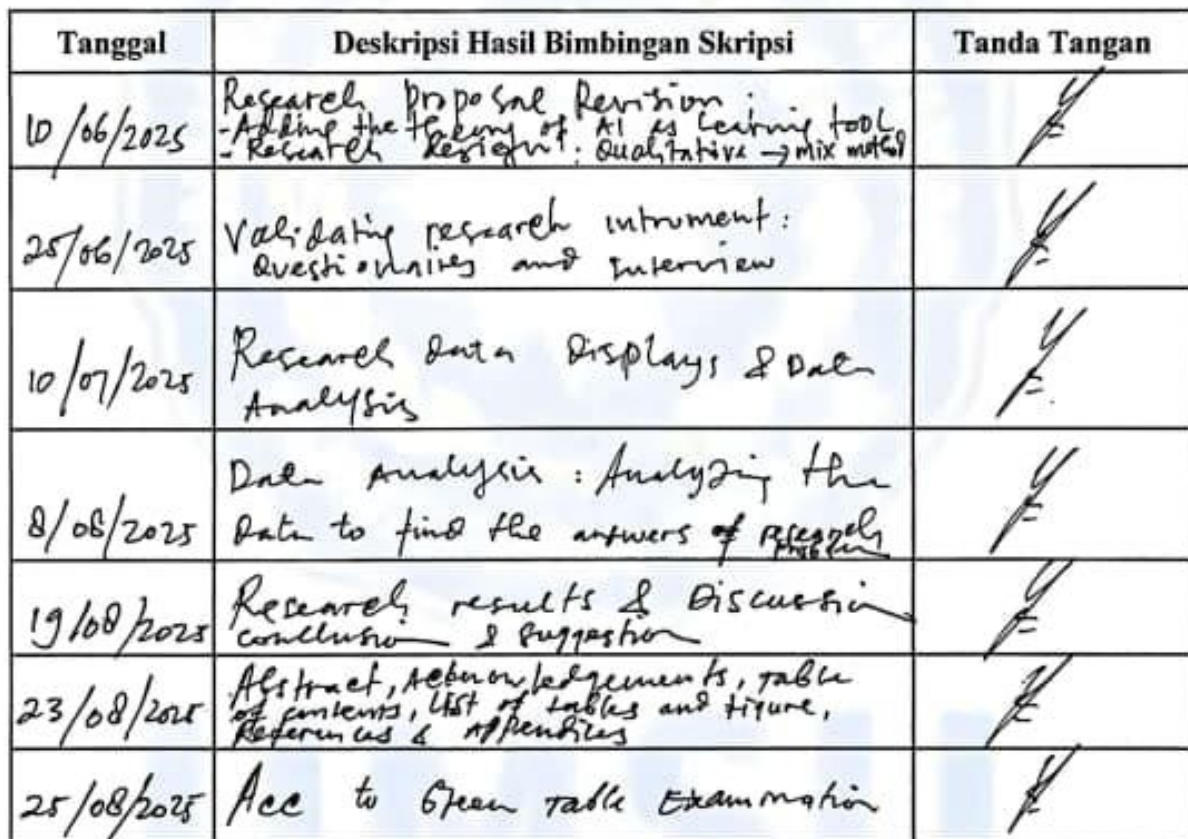 Tanggal Deskripsi Hasil Bimbingan Skripsi Tanda Tangan
10/06/2025 Research Proposal Revision :
- Adding the theory of AI as Learning tool
- Research design : Qualitative → mix method
25/06/2025 Validating research intrument :
Questionaires and Interview
10/07/2025 Research Data Displays & Data
Analysis
Data Analysis : Analyzing the
8/08/2025 Data to find the answers of research
problem
19/08/2025 Research results & Discussion
conclusion & suggestion
Abstract, Acknowledgements, Table
23/08/2025 of contents, List of tables and figure,
References & Appendices
25/08/2025 Acc to Green Table Examination